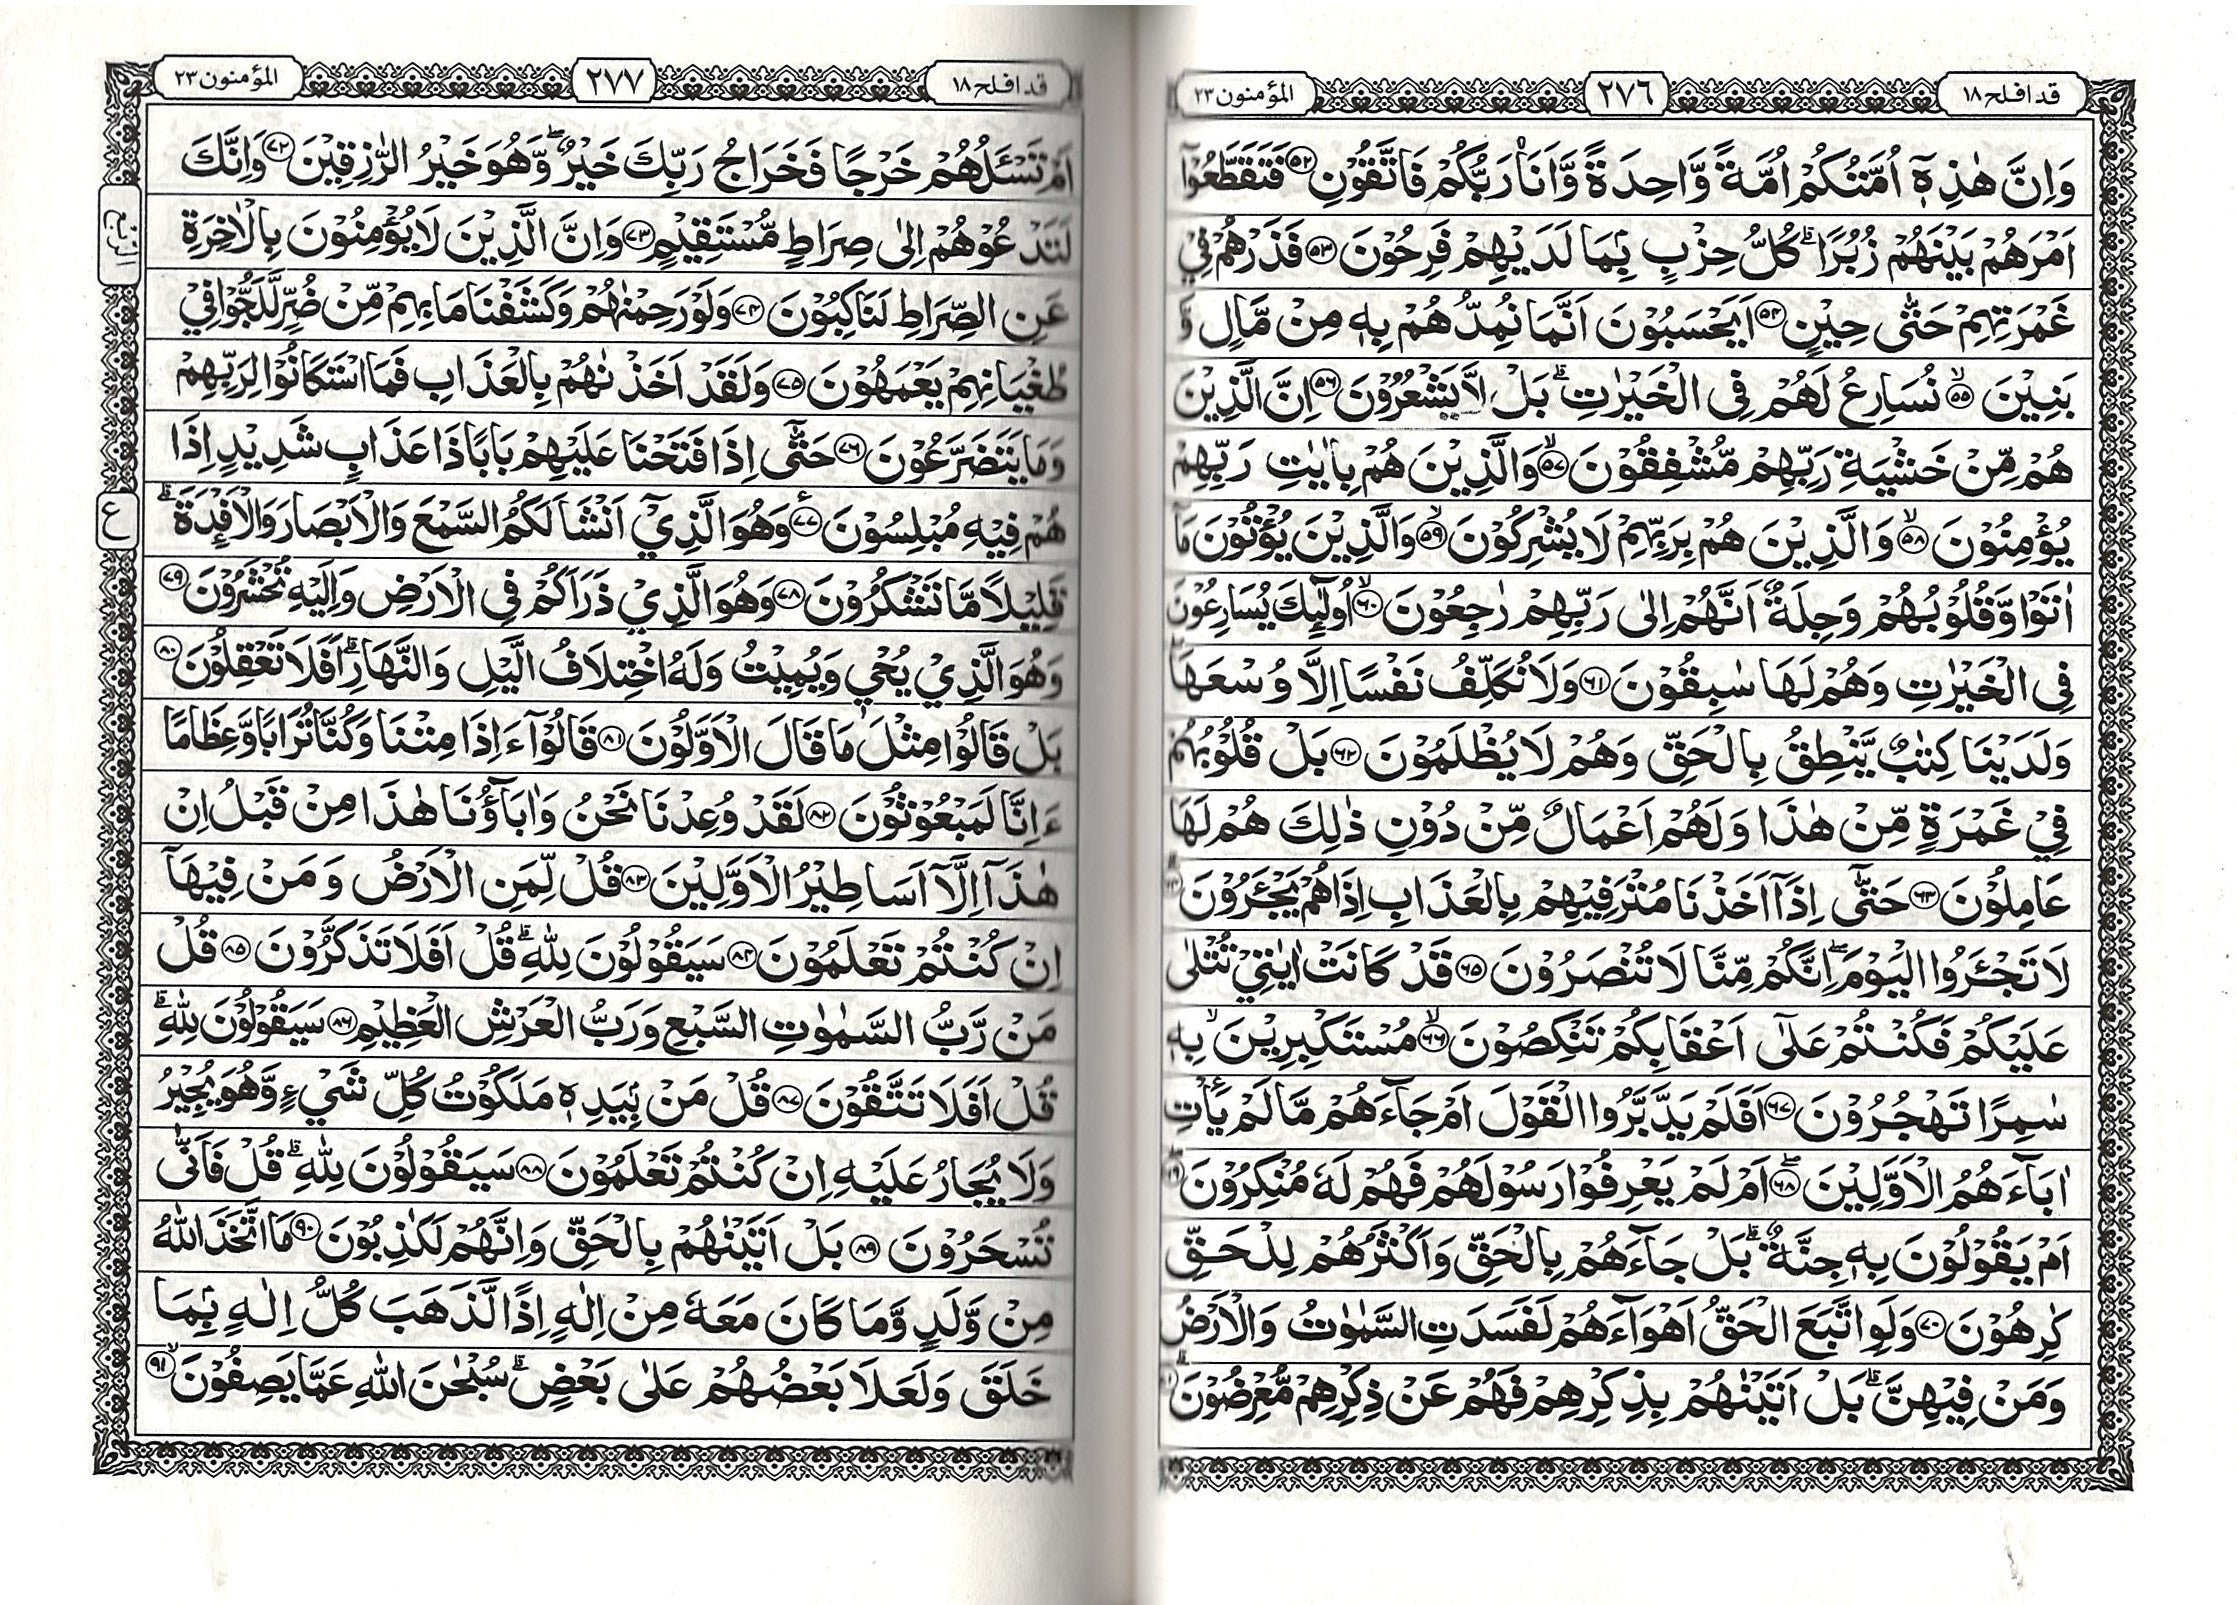 قد افلح ١٨
٢٧٦
المؤمنون ٢٣
وَاِنَّ هٰذِهٖۤ اُمَّتُكُمْ اُمَّةً وَّاحِدَةً وَّاَنَا رَبُّكُمْ فَاتَّقُوْنِ ﴿۵۲﴾ فَتَقَطَّعُوْۤا
اَمْرَهُمْ بَيْنَهُمْ زُبُرًا ؕ كُلُّ حِزْبٍۭ بِمَا لَدَيْهِمْ فَرِحُوْنَ ﴿۵۳﴾ فَذَرْهُمْ فِيْ
غَمْرَتِهِمْ حَتّٰى حِيْنٍ ﴿۵۴﴾ اَيَحْسَبُوْنَ اَنَّمَا نُمِدُّهُمْ بِهٖ مِنْ مَّالٍ وَّ
بَنِيْنَ ﴿۵۵﴾ نُسَارِعُ لَهُمْ فِى الْخَيْرٰتِ ؕ بَلْ لَّا يَشْعُرُوْنَ ﴿۵۶﴾ اِنَّ الَّذِيْنَ
هُمْ مِّنْ خَشْيَةِ رَبِّهِمْ مُّشْفِقُوْنَ ﴿۵۷﴾ وَالَّذِيْنَ هُمْ بِاٰيٰتِ رَبِّهِمْ
يُؤْمِنُوْنَ ﴿۵۸﴾ وَالَّذِيْنَ هُمْ بِرَبِّهِمْ لَا يُشْرِكُوْنَ ﴿۵۹﴾ وَالَّذِيْنَ يُؤْتُوْنَ مَاۤ
اٰتَوْا وَّقُلُوْبُهُمْ وَجِلَةٌ اَنَّهُمْ اِلٰى رَبِّهِمْ رٰجِعُوْنَ ﴿۶۰﴾ اُولٰٓئِكَ يُسَارِعُوْنَ
فِى الْخَيْرٰتِ وَهُمْ لَهَا سٰبِقُوْنَ ﴿۶۱﴾ وَلَا نُكَلِّفُ نَفْسًا اِلَّا وُسْعَهَا
وَلَدَيْنَا كِتٰبٌ يَّنْطِقُ بِالْحَقِّ وَهُمْ لَا يُظْلَمُوْنَ ﴿۶۲﴾ بَلْ قُلُوْبُهُمْ
فِيْ غَمْرَةٍ مِّنْ هٰذَا وَلَهُمْ اَعْمَالٌ مِّنْ دُوْنِ ذٰلِكَ هُمْ لَهَا
عَامِلُوْنَ ﴿۶۳﴾ حَتّٰۤى اِذَاۤ اَخَذْنَا مُتْرَفِيْهِمْ بِالْعَذَابِ اِذَا هُمْ يَجْـَٔرُوْنَ
لَا تَجْـَٔرُوا الْيَوْمَ اِنَّكُمْ مِّنَّا لَا تُنْصَرُوْنَ ﴿۶۵﴾ قَدْ كَانَتْ اٰيٰتِيْ تُتْلٰى
عَلَيْكُمْ فَكُنْتُمْ عَلٰۤى اَعْقَابِكُمْ تَنْكِصُوْنَ ﴿۶۶﴾ مُسْتَكْبِرِيْنَ بِهٖ
سٰمِرًا تَهْجُرُوْنَ ﴿۶۷﴾ اَفَلَمْ يَدَّبَّرُوا الْقَوْلَ اَمْ جَآءَهُمْ مَّا لَمْ يَاْتِ
اٰبَآءَهُمُ الْاَوَّلِيْنَ ﴿۶۸﴾ اَمْ لَمْ يَعْرِفُوْا رَسُوْلَهُمْ فَهُمْ لَهٗ مُنْكِرُوْنَ
اَمْ يَقُوْلُوْنَ بِهٖ جِنَّةٌ ؕ بَلْ جَآءَهُمْ بِالْحَقِّ وَاَكْثَرُهُمْ لِلْحَقِّ
كٰرِهُوْنَ ﴿۷۰﴾ وَلَوِ اتَّبَعَ الْحَقُّ اَهْوَآءَهُمْ لَفَسَدَتِ السَّمٰوٰتُ وَالْاَرْضُ
وَمَنْ فِيْهِنَّ ؕ بَلْ اَتَيْنٰهُمْ بِذِكْرِهِمْ فَهُمْ عَنْ ذِكْرِهِمْ مُّعْرِضُوْنَ ؕ
قد افلح ١٨
٢٧٧
المؤمنون ٢٣
اَمْ تَسْـَٔلُهُمْ خَرْجًا فَخَرَاجُ رَبِّكَ خَيْرٌ وَّهُوَ خَيْرُ الرّٰزِقِيْنَ ﴿۷۲﴾ وَاِنَّكَ
لَتَدْعُوْهُمْ اِلٰى صِرَاطٍ مُّسْتَقِيْمٍ ﴿۷۳﴾ وَاِنَّ الَّذِيْنَ لَا يُؤْمِنُوْنَ بِالْاٰخِرَةِ
عَنِ الصِّرَاطِ لَنَاكِبُوْنَ ﴿۷۴﴾ وَلَوْ رَحِمْنٰهُمْ وَكَشَفْنَا مَا بِهِمْ مِّنْ ضُرٍّ لَّلَجُّوْا فِيْ
طُغْيَانِهِمْ يَعْمَهُوْنَ ﴿۷۵﴾ وَلَقَدْ اَخَذْنٰهُمْ بِالْعَذَابِ فَمَا اسْتَكَانُوْا لِرَبِّهِمْ
وَمَا يَتَضَرَّعُوْنَ ﴿۷۶﴾ حَتّٰۤى اِذَا فَتَحْنَا عَلَيْهِمْ بَابًا ذَا عَذَابٍ شَدِيْدٍ اِذَا
هُمْ فِيْهِ مُبْلِسُوْنَ ﴿۷۷﴾ وَهُوَ الَّذِيْۤ اَنْشَاَ لَكُمُ السَّمْعَ وَالْاَبْصَارَ وَالْاَفْـِٕدَةَ ؕ
قَلِيْلًا مَّا تَشْكُرُوْنَ ﴿۷۸﴾ وَهُوَ الَّذِيْ ذَرَاَكُمْ فِى الْاَرْضِ وَاِلَيْهِ تُحْشَرُوْنَ ﴿۷۹﴾
وَهُوَ الَّذِيْ يُحْيٖ وَيُمِيْتُ وَلَهُ اخْتِلَافُ الَّيْلِ وَالنَّهَارِ ؕ اَفَلَا تَعْقِلُوْنَ ﴿۸۰﴾
بَلْ قَالُوْا مِثْلَ مَا قَالَ الْاَوَّلُوْنَ ﴿۸۱﴾ قَالُوْۤا ءَاِذَا مِتْنَا وَكُنَّا تُرَابًا وَّعِظَامًا
ءَاِنَّا لَمَبْعُوْثُوْنَ ﴿۸۲﴾ لَقَدْ وُعِدْنَا نَحْنُ وَاٰبَآؤُنَا هٰذَا مِنْ قَبْلُ اِنْ
هٰذَاۤ اِلَّاۤ اَسَاطِيْرُ الْاَوَّلِيْنَ ﴿۸۳﴾ قُلْ لِّمَنِ الْاَرْضُ وَمَنْ فِيْهَاۤ
اِنْ كُنْتُمْ تَعْلَمُوْنَ ﴿۸۴﴾ سَيَقُوْلُوْنَ لِلّٰهِ ؕ قُلْ اَفَلَا تَذَكَّرُوْنَ ﴿۸۵﴾ قُلْ
مَنْ رَّبُّ السَّمٰوٰتِ السَّبْعِ وَرَبُّ الْعَرْشِ الْعَظِيْمِ ﴿۸۶﴾ سَيَقُوْلُوْنَ لِلّٰهِ ؕ
قُلْ اَفَلَا تَتَّقُوْنَ ﴿۸۷﴾ قُلْ مَنْۢ بِيَدِهٖ مَلَكُوْتُ كُلِّ شَيْءٍ وَّهُوَ يُجِيْرُ
وَلَا يُجَارُ عَلَيْهِ اِنْ كُنْتُمْ تَعْلَمُوْنَ ﴿۸۸﴾ سَيَقُوْلُوْنَ لِلّٰهِ ؕ قُلْ فَاَنّٰى
تُسْحَرُوْنَ ﴿۸۹﴾ بَلْ اَتَيْنٰهُمْ بِالْحَقِّ وَاِنَّهُمْ لَكٰذِبُوْنَ ﴿۹۰﴾ مَا اتَّخَذَ اللّٰهُ
مِنْ وَّلَدٍ وَّمَا كَانَ مَعَهٗ مِنْ اِلٰهٍ اِذًا لَّذَهَبَ كُلُّ اِلٰهٍۭ بِمَا
خَلَقَ وَلَعَلَا بَعْضُهُمْ عَلٰى بَعْضٍ ؕ سُبْحٰنَ اللّٰهِ عَمَّا يَصِفُوْنَ ﴿۹۱﴾
الربع
ع